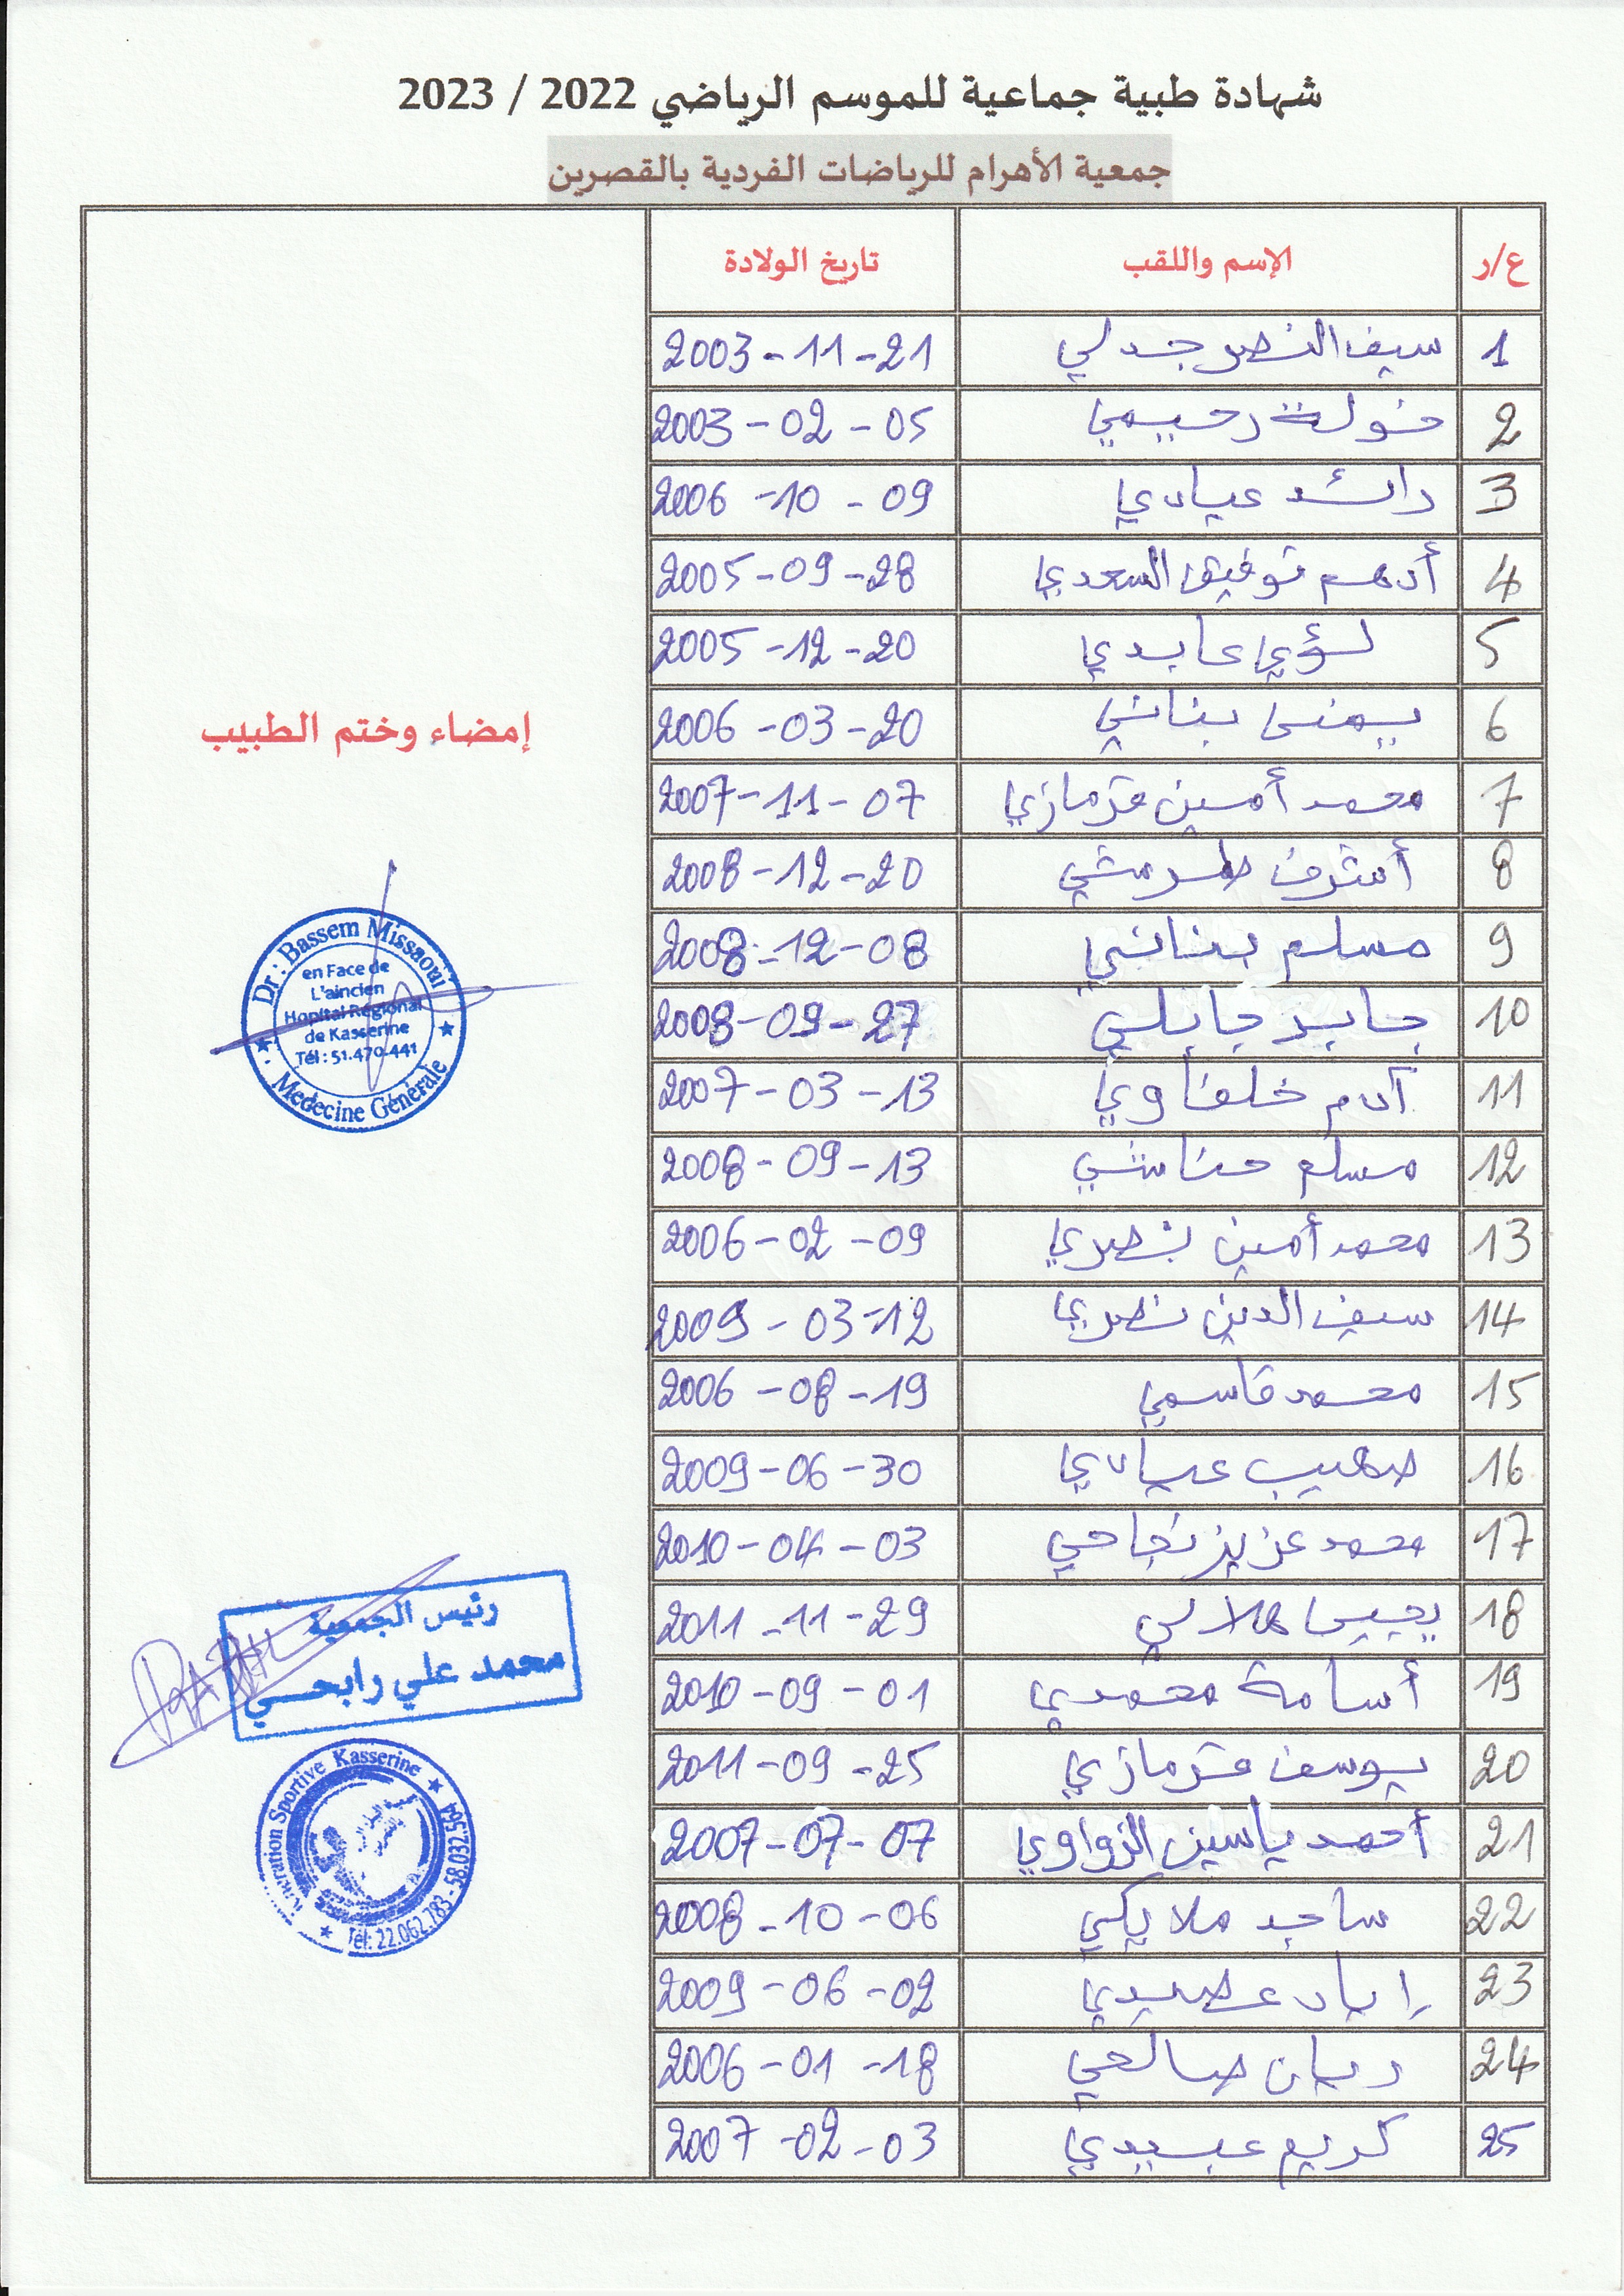 شهادة طبية جماعية للموسم الرياضي 2022 / 2023
جمعية الأهرام للرياضات الفردية بالقصرين
ع/ر الإسم واللقب تاريخ الولادة
1 سيف النصر جدلي 2003-11-21
2 خولة رحيمي 2003-02-05
3 رائد عيادي 2006-10-09
4 أدهم توفيق السعدي 2005-09-28
5 لؤي عابدي 2005-12-20
6 يمنى بناني 2006-03-20
7 محمد أمين قرمازي 2007-11-07
8 أشرف طرمشي 2008-12-20
9 مسلم بناني 2008-12-08
10 جابر جابلي 2008-09-27
11 آدم خلفاوي 2007-03-13
12 مسلم حناشي 2008-09-13
13 محمد أمين نصري 2006-02-09
14 سيف الدين نصري 2009-03-12
15 محمد قاسمي 2006-08-19
16 صهيب عيادي 2009-06-30
17 محمد عزيز نجاحي 2010-04-03
18 يحيى هلالي 2011-11-29
19 أسامة محمدي 2010-09-01
20 يوسف قرمازي 2011-09-25
21 أحمد ياسين الزواوي 2007-07-07
22 ساجد ملايكي 2008-10-06
23 إياد 2009-06-02
24 ريان صالحي 2006-01-18
25 كريم عبيدي 2007-02-03
إمضاء وختم الطبيب
Dr.: Bassem Missaoui
en Face de
L'aincien
Hopital Régional
de Kasserine
Tél : 51.470.441
Medecine Générale
رئيس الجمعية
محمد علي رابحي
Sportive Kasserine
Tél: 22.062.783 - 58.032.564